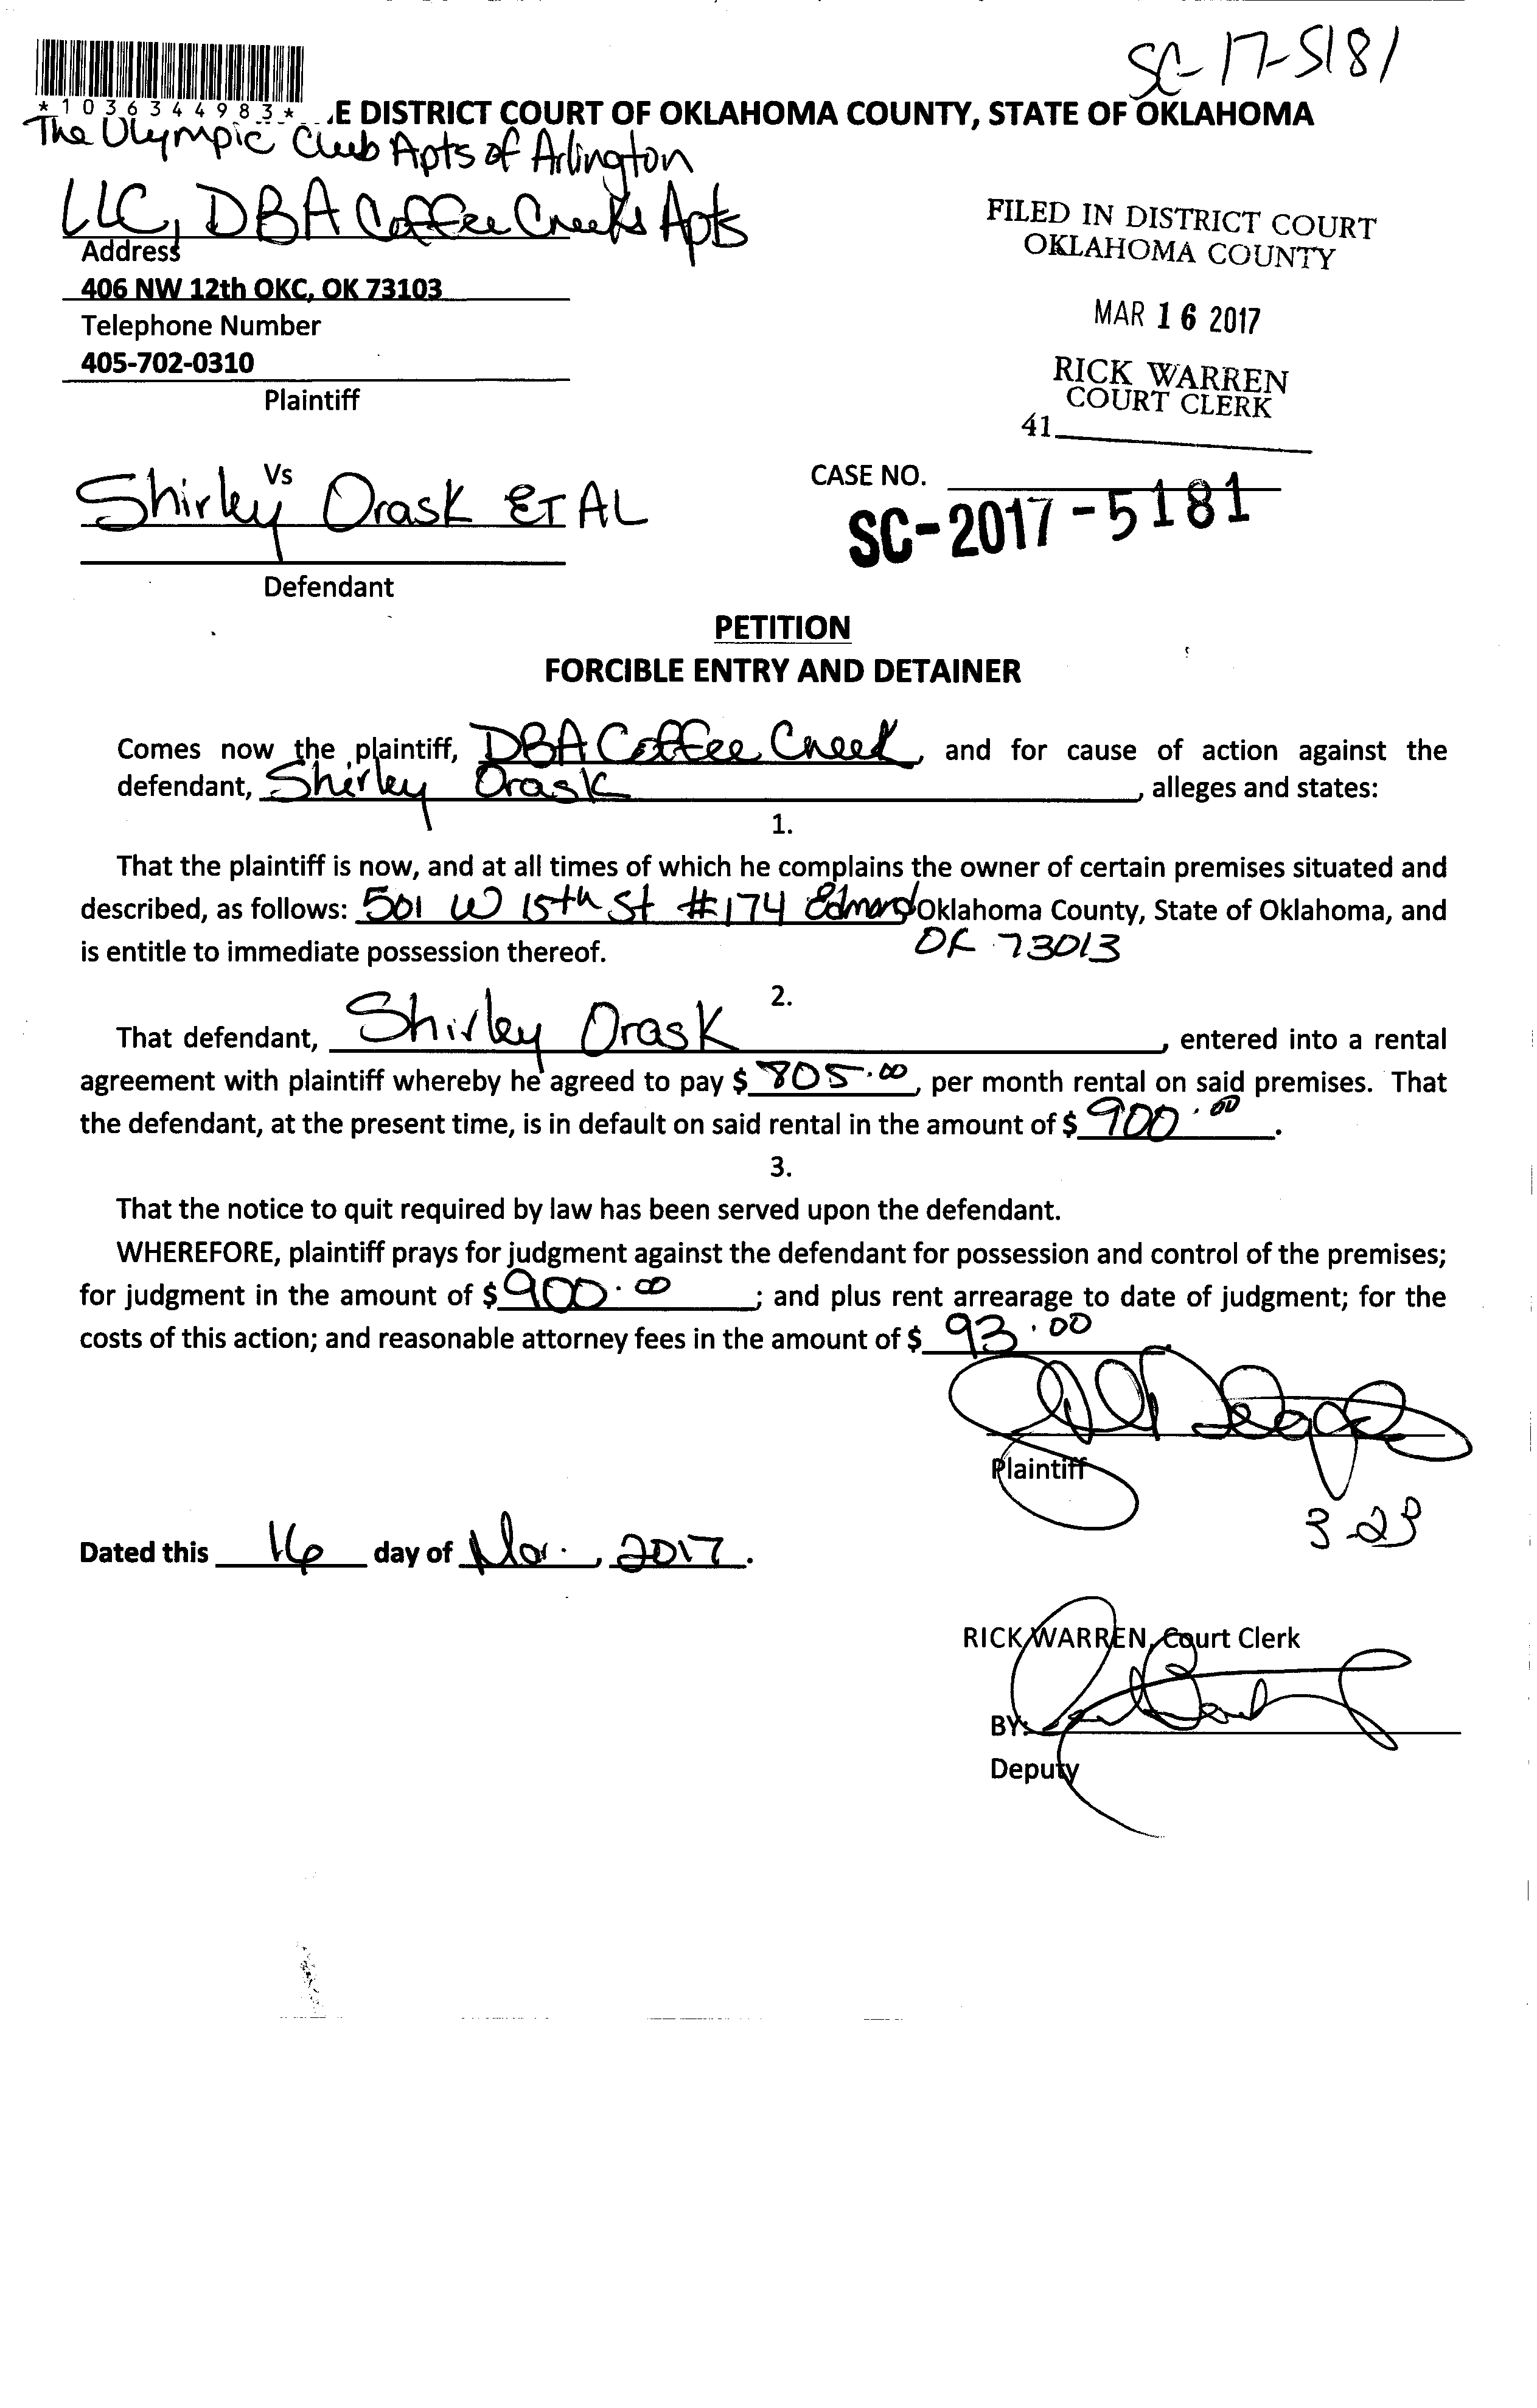 SC-17-5181
*1036344983*
E DISTRICT COURT OF OKLAHOMA COUNTY, STATE OF OKLAHOMA
The Olympic Club Apts of Arlington
LLC, DBA Coffee Creeks Apts
Address
406 NW 12th OKC, OK 73103
Telephone Number
405-702-0310
Plaintiff
FILED IN DISTRICT COURT
OKLAHOMA COUNTY
MAR 16 2017
RICK WARREN
COURT CLERK
41
Vs
Shirley Orask ET AL
Defendant
CASE NO.
SC-2017-5181
PETITION
FORCIBLE ENTRY AND DETAINER
Comes now the plaintiff, DBA Coffee Creek, and for cause of action against the
defendant, Shirley Orask, alleges and states:
1.
That the plaintiff is now, and at all times of which he complains the owner of certain premises situated and
described, as follows: 501 W 15th St #174 Edmond Oklahoma County, State of Oklahoma, and
is entitle to immediate possession thereof. OK 73013
2.
That defendant, Shirley Orask, entered into a rental
agreement with plaintiff whereby he agreed to pay $ 805.00, per month rental on said premises. That
the defendant, at the present time, is in default on said rental in the amount of $ 900.00.
3.
That the notice to quit required by law has been served upon the defendant.
WHEREFORE, plaintiff prays for judgment against the defendant for possession and control of the premises;
for judgment in the amount of $ 900.00; and plus rent arrearage to date of judgment; for the
costs of this action; and reasonable attorney fees in the amount of $ 93.00.
Plaintiff
3-23
Dated this 16 day of Mar., 2017.
RICK WARREN, Court Clerk
BY:
Deputy